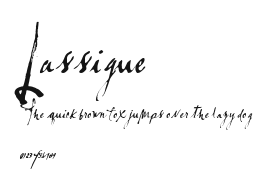 Lassigue
The quick brown fox jumps over the lazy dog